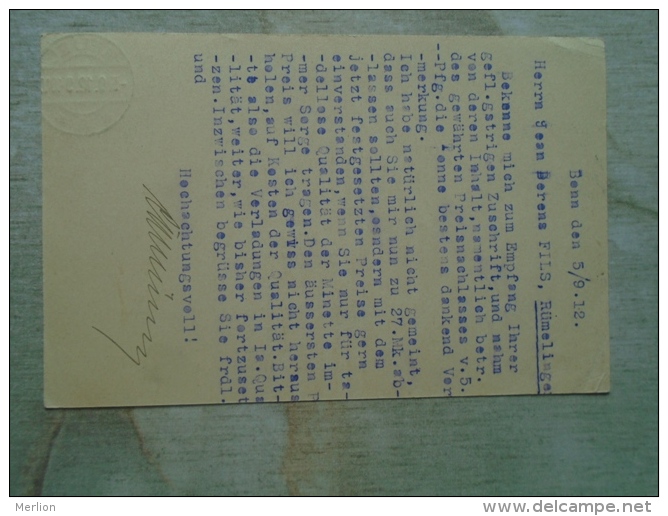 Bonn den 5/9.12.
Herrn Jean Berens FILS, Rümelinge
Bekenne mich zum Empfang Ihrer
gefl.gstrigen Zuschrift,und nahm
von deren Inhalt,namentlich betr.
des gewährten Preisnachlasses v.5.
--Pfg.die Tonne bestens dankend Ver
-merkung.
Ich habe natürlich nicht gemeint,
dass auch Sie mir nun zu 27.Mk.ab-
-lassen sollten,sondern mit dem
jetzt festgesetzten Preise gern
einverstanden,wenn Sie nur für ta-
-dellose Qualität der Minette im-
-mer Sorge tragen.Den äussersten P
Preis will ich gewiss nicht heraus
holen,auf Kosten der Qualität.Bit-
-te also die Verladungen in Ia.Qua
-lität,weiter,wie bisher fortzuset
-zen.Inzwischen begrüsse Sie frdl.
und
Hochachtungsvoll!
Merlion
delcampe.net